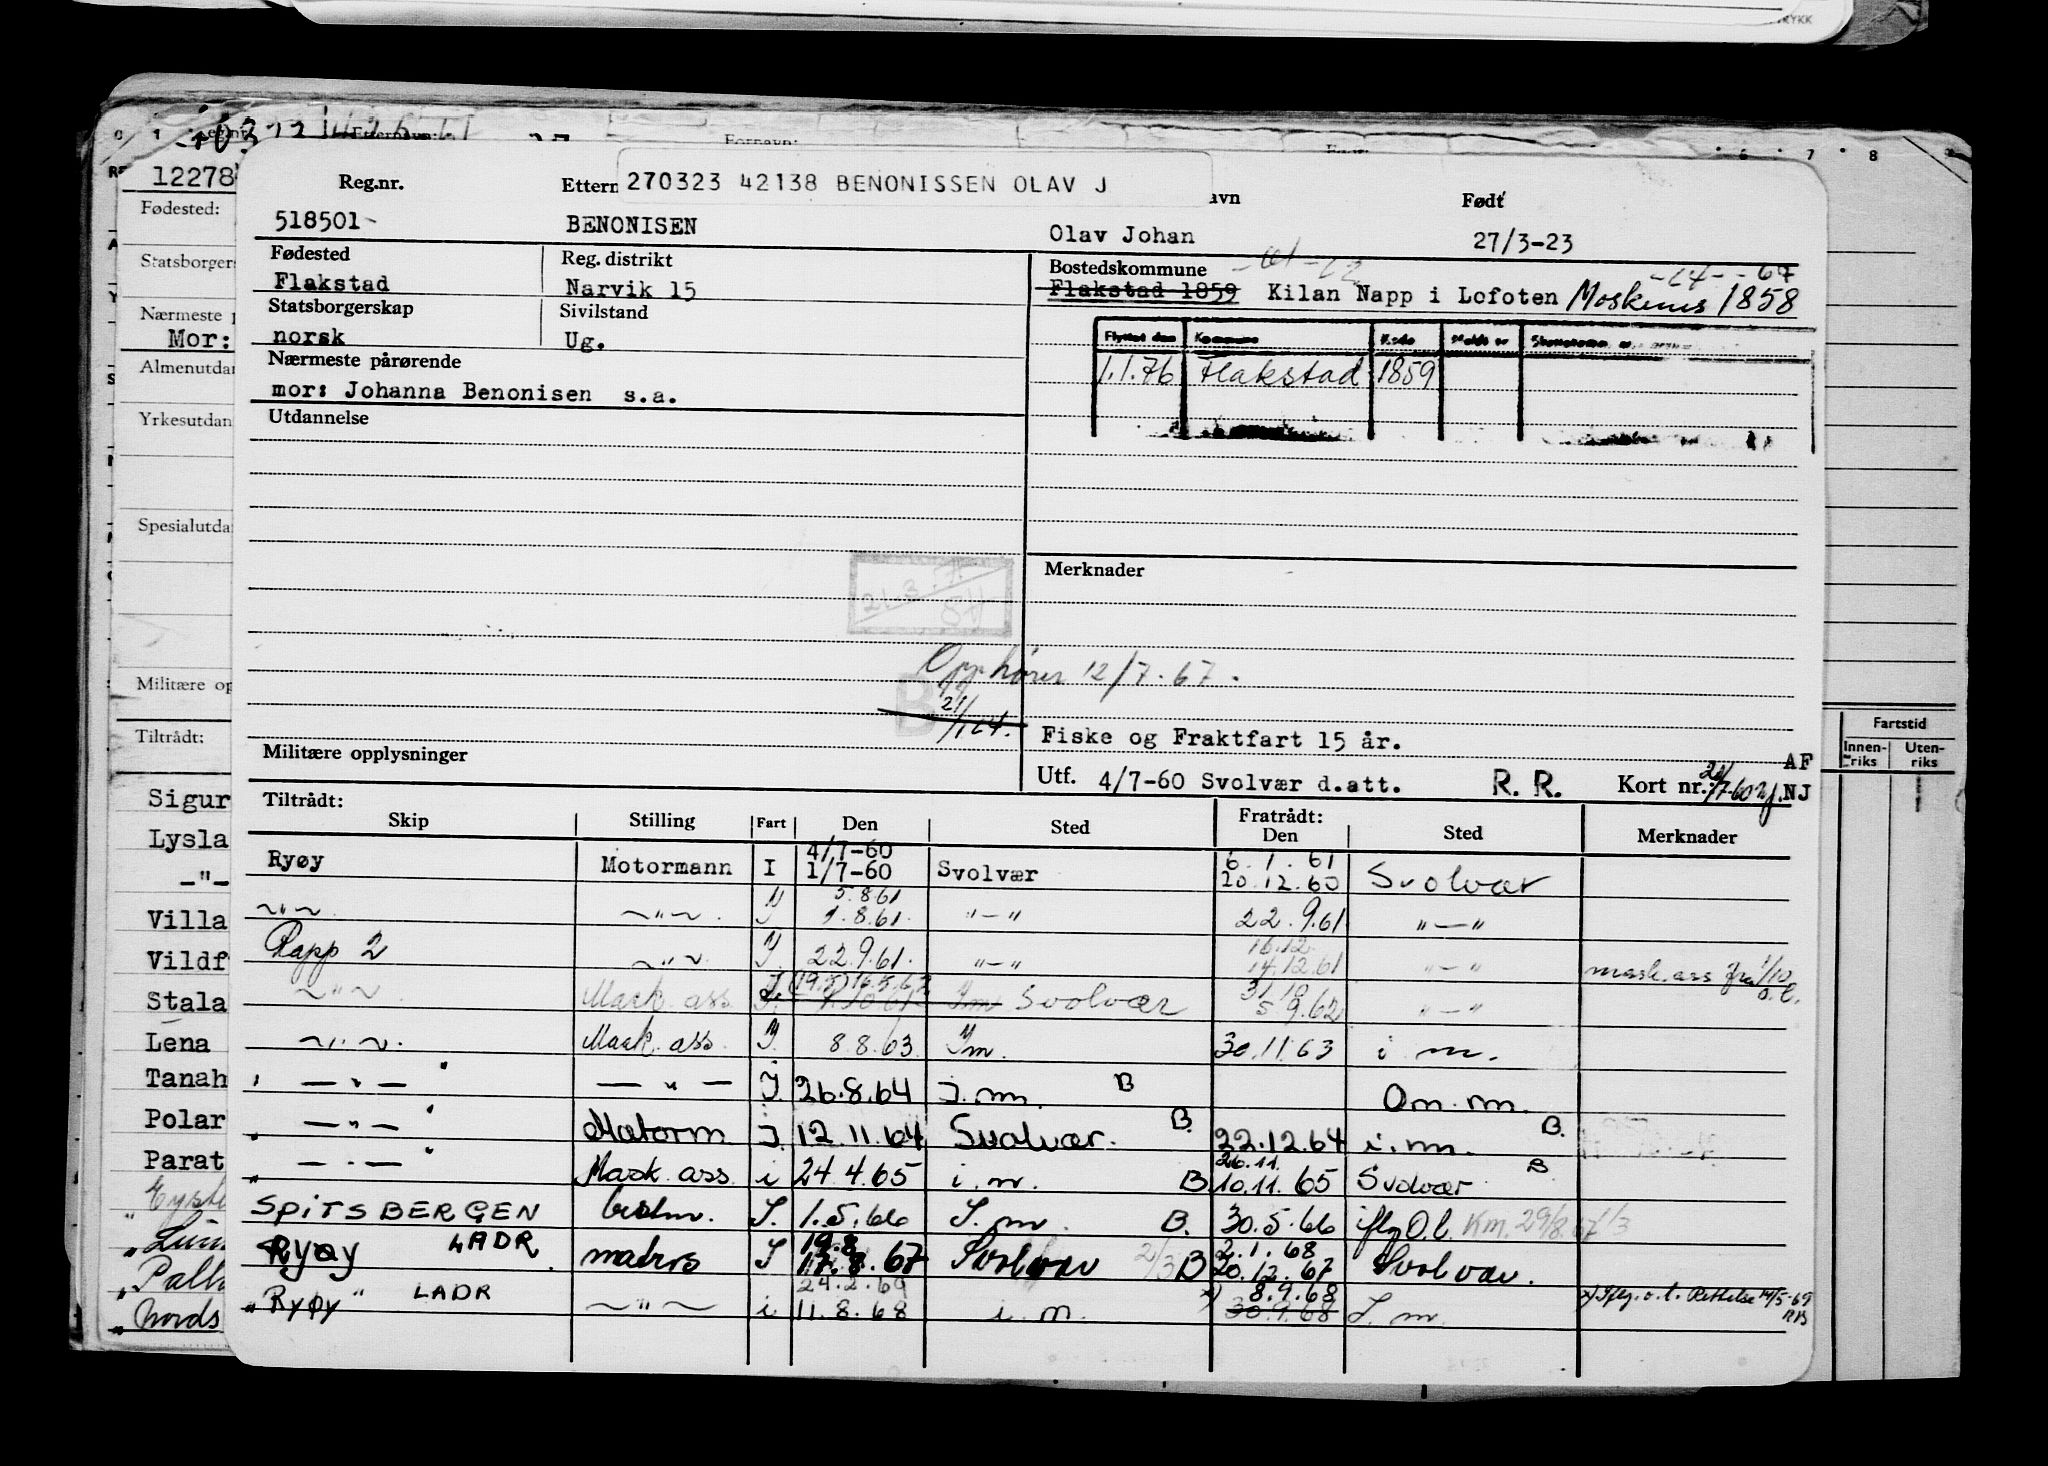 RYKK
0 1 Reg.nr. Etternavn: Fornavn: Født: 6 7 8
12278
Fødested:
Statsborgers
Nærmeste p
Mor:
Almenutdan
Yrkesutdan
Spesialutda
Militære op
Tiltrådt:
Sigur
Lysla
-"-
Villa
Vildf
Stala
Lena
Tanah
Polar
Parat
Fartstid
Innen-riks Uten-riks
270323 42138 BENONISSEN OLAV J
Reg.nr. Ettern avn Født
518501 BENONISEN Olav Johan 27/3-23
Fødested Reg. distrikt Bostedskommune
Flakstad Narvik 15 Flakstad 1859 Kilan Napp i Lofoten Moskenes 1858
Statsborgerskap Sivilstand
norsk Ug.
Flyttet den Kommune Kode
1.1.76 Flakstad 1859
Nærmeste pårørende
mor: Johanna Benonisen s.a.
Utdannelse
Merknader
21.3.
Opphører 12/7.67.
B
Fiske og Fraktfart 15 år.
Militære opplysninger
Utf. 4/7-60 Svolvær d.att. R. R. Kort nr. AF NJ
Tiltrådt: Fratrådt:
Skip Stilling Fart Den Sted Den Sted Merknader
4/7-60 6.1.61
Ryøy Motormann I 1/7-60 Svolvær 20.12.60 Svolvær
5.8.61
~"~ ~"~ I 1.8.61 "-" 22.9.61 "-"
16.12.
Rapp 2 ~"~ I 22.9.61. "-" 14.12.61 "-" mask.ass fra 1/10 o.l.
(19.5) 16.5.62 31.10
~"~ Mask. ass I. 1.10.61 Im Svolvær 5.9.62 "-"
~"~ Mask. ass. I. 8.8.63 Im. 30.11.63 i m.
" -"- " -"- I. 26.8.64 I.m. B Om.m.
" -"- " Motorm I. 12.11.64 Svolvær. B. 22.12.64 i.m. B.
26.11.
" -"- " Mask ass. i 24.4.65 i.m. B 10.11.65 Svolvær B
SPITSBERGEN bestm. I. 1.5.66 I.m. B. 30.5.66 iflg O.l. Km. 29/8.67
19.8 2.1.68
Ryøy LADR matros I 17.8.67 Svolvær 2/3 B 20.12.67 Svolvær.
24.2.69 x) 8.9.68
" Ryøy " LADR ~"~ i 11.8.68 i.m. 30.9.68 I.m. x) Iflg. o.l. Rettelse 14/5-69